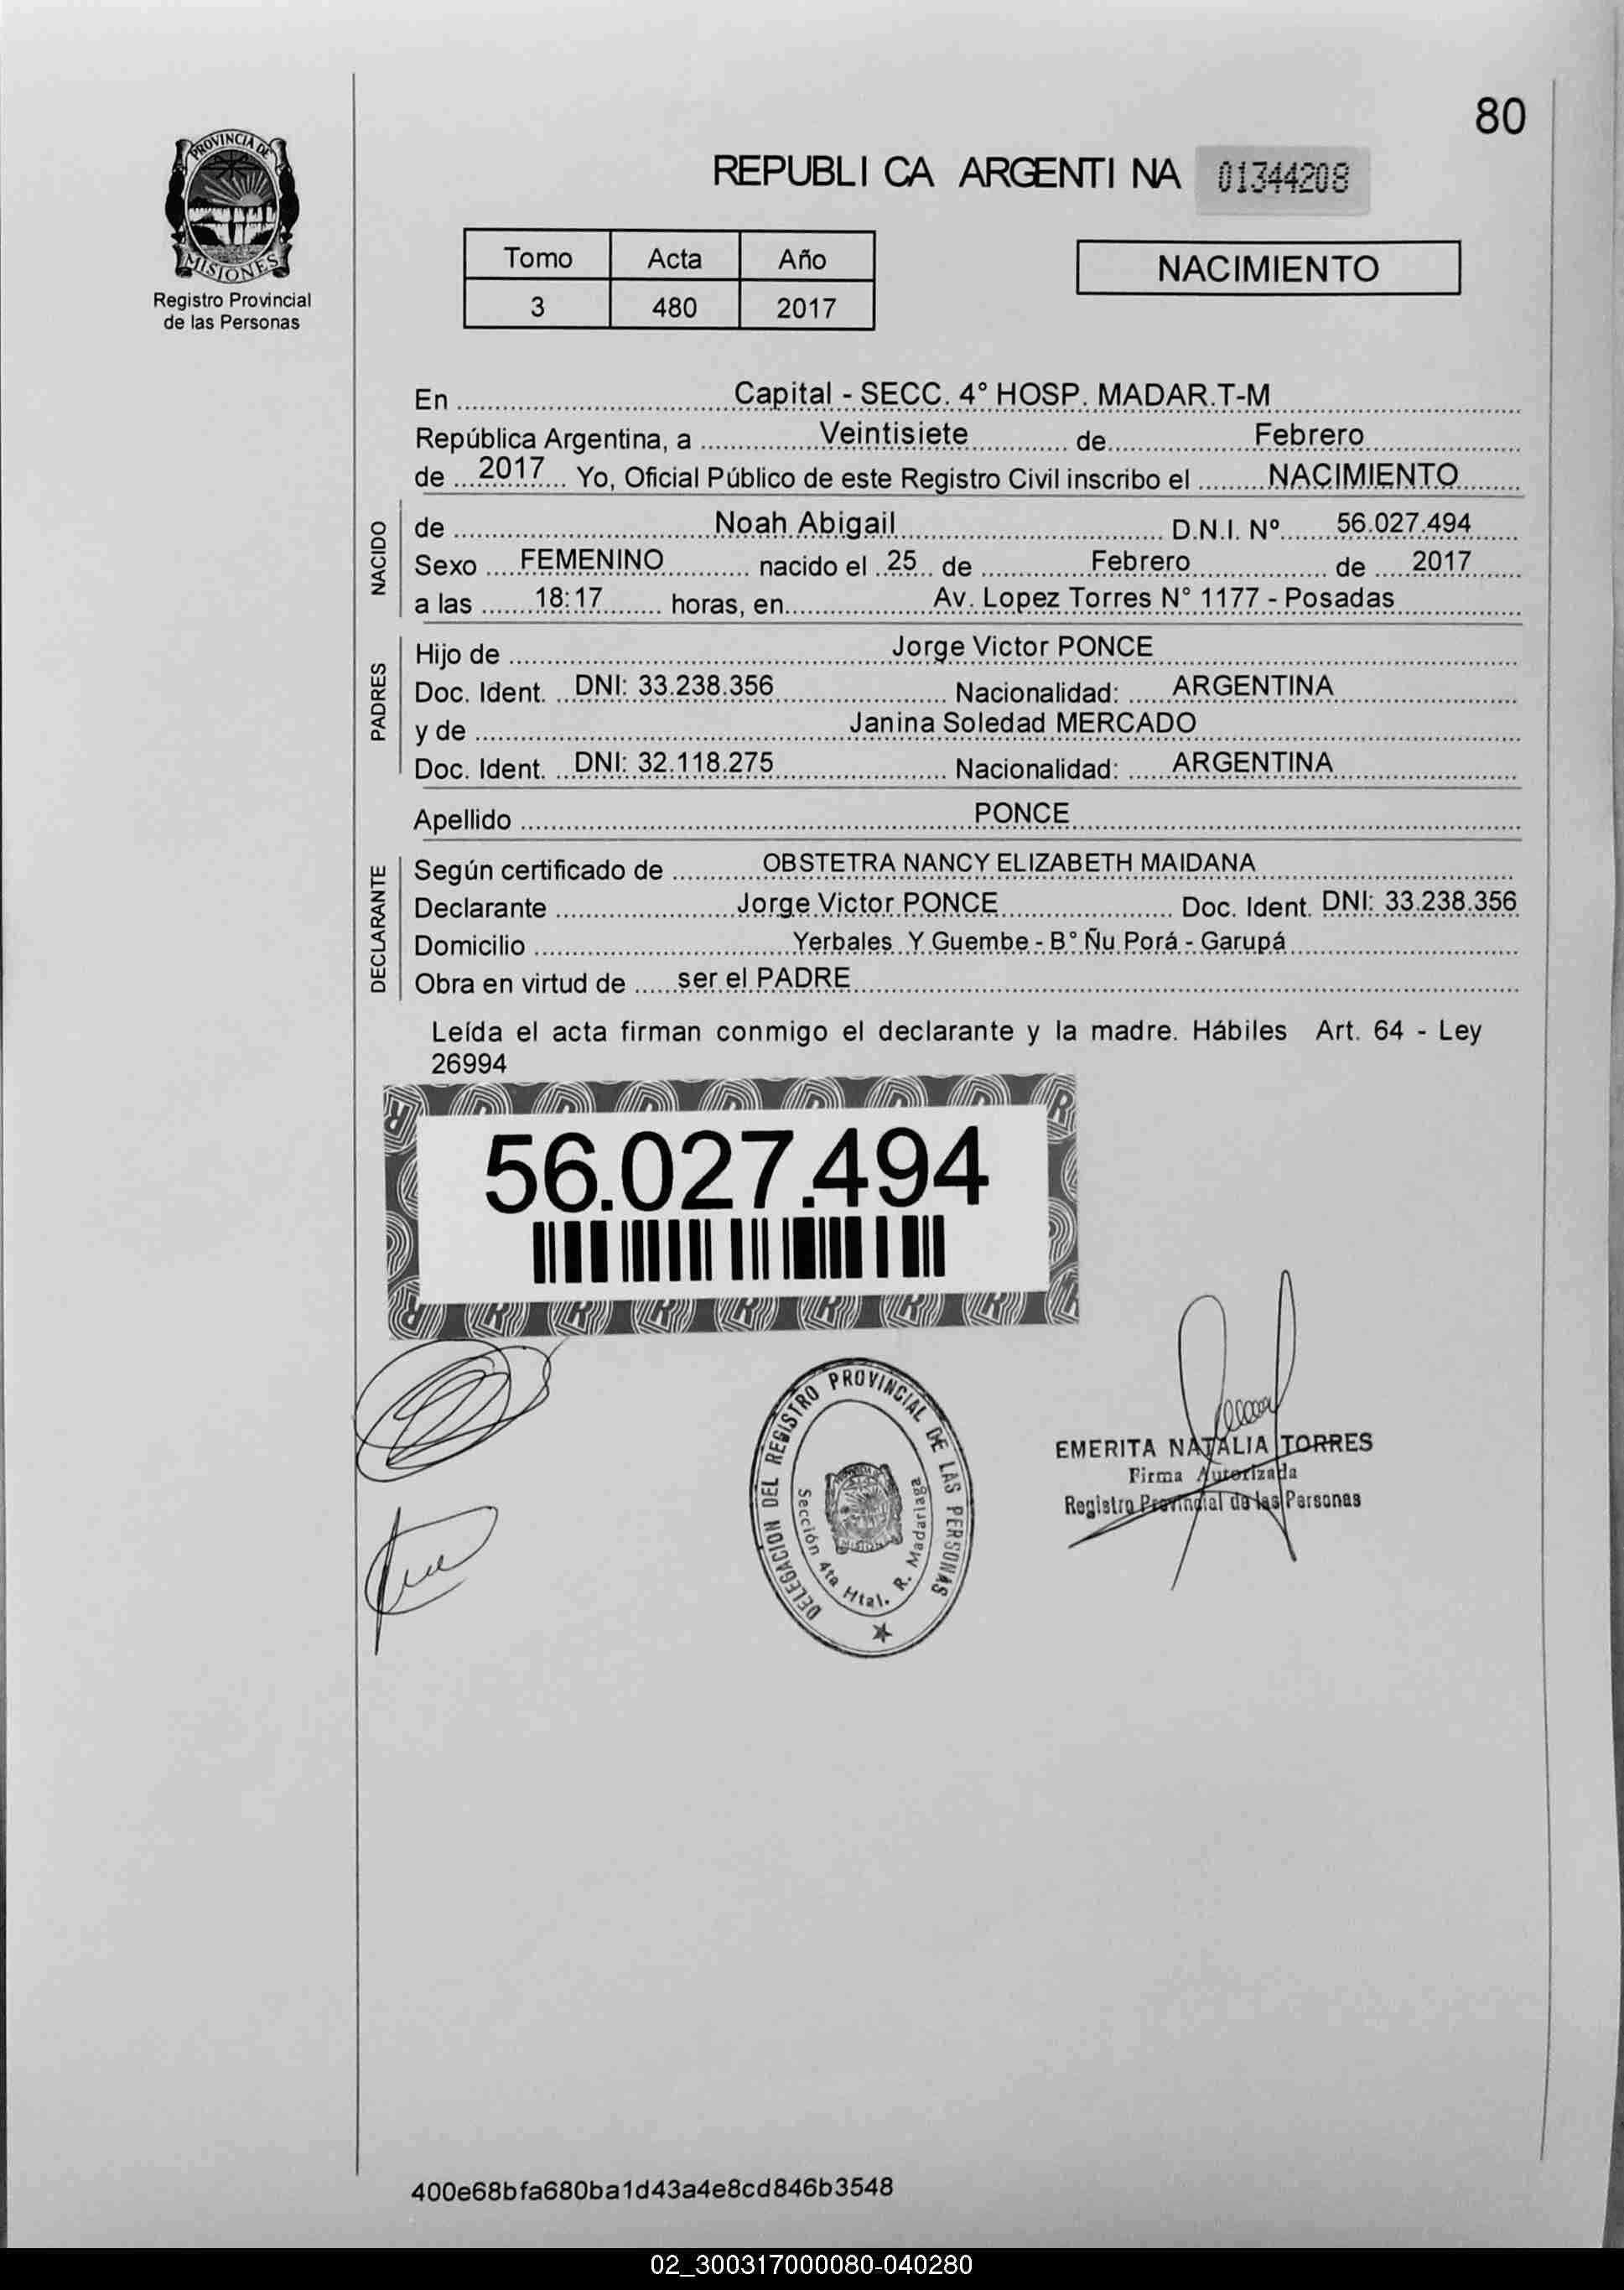 80
PROVINCIA DE
MISIONES
Registro Provincial
de las Personas
REPUBLICA ARGENTINA 01344208
Tomo Acta Año
3 480 2017
NACIMIENTO
En Capital - SECC. 4° HOSP. MADAR.T-M
República Argentina, a Veintisiete de Febrero
de 2017 Yo, Oficial Público de este Registro Civil inscribo el NACIMIENTO
NACIDO
de Noah Abigail D.N.I. Nº 56.027.494
Sexo FEMENINO nacido el 25 de Febrero de 2017
a las 18:17 horas, en Av. Lopez Torres N° 1177 - Posadas
PADRES
Hijo de Jorge Victor PONCE
Doc. Ident. DNI: 33.238.356 Nacionalidad: ARGENTINA
y de Janina Soledad MERCADO
Doc. Ident. DNI: 32.118.275 Nacionalidad: ARGENTINA
Apellido PONCE
DECLARANTE
Según certificado de OBSTETRA NANCY ELIZABETH MAIDANA
Declarante Jorge Victor PONCE Doc. Ident. DNI: 33.238.356
Domicilio Yerbales Y Guembe - B° Ñu Porá - Garupá
Obra en virtud de ser el PADRE
Leída el acta firman conmigo el declarante y la madre. Hábiles Art. 64 - Ley
26994
56.027.494
DELEGACION DEL REGISTRO PROVINCIAL DE LAS PERSONAS
Sección 4ta Htal. R. Madariaga
EMERITA NATALIA TORRES
Firma Autorizada
Registro Provincial de las Personas
400e68bfa680ba1d43a4e8cd846b3548
02_300317000080-040280